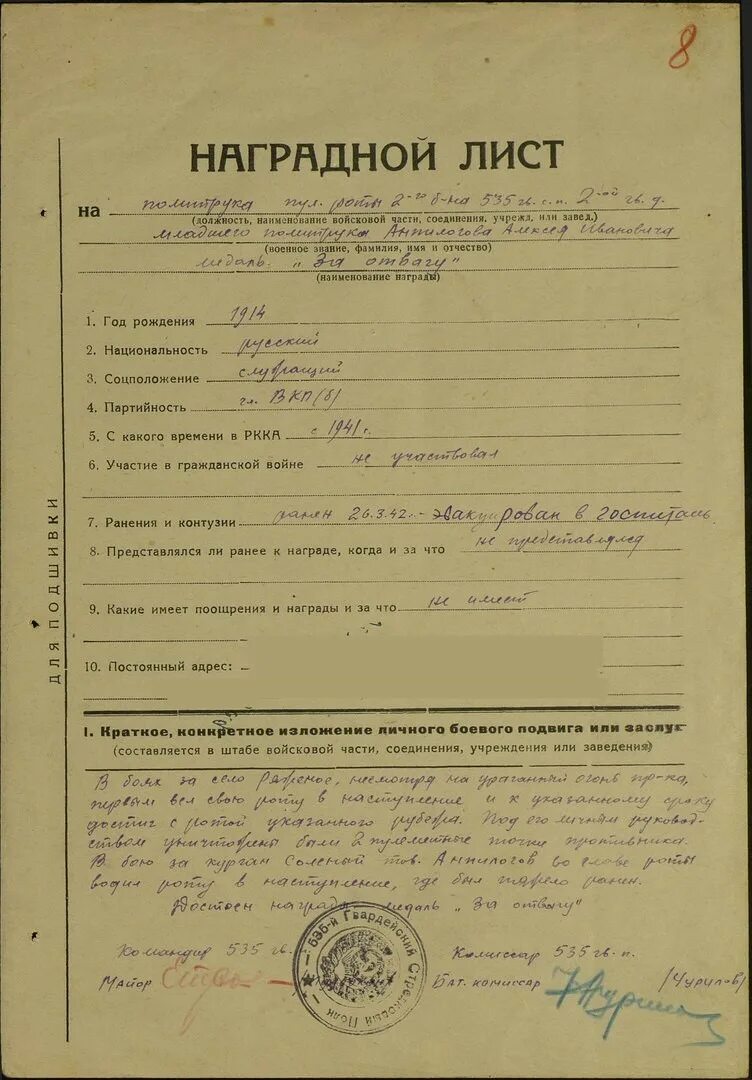 8
НАГРАДНОЙ ЛИСТ
на политрука пул. роты 2-го б-на 535 гв. с.п. 2-ой гв. д.
(должность, наименование войсковой части, соединения, учрежд, или завед.)
младшего политрука Анпилогова Алексея Ивановича
(военное звание, фамилия, имя и отчество)
медаль „За отвагу"
(наименование награды)
1. Год рождения 1914
2. Национальность русский
3. Соцположение служащий
4. Партийность чл. ВКП(б)
5. С какого времени в РККА с 1941 г.
6. Участие в гражданской войне не участвовал
7. Ранения и контузии ранен 26.3.42. - эвакуирован в госпиталь
8. Представлялся ли ранее к награде, когда и за что не представлялся
9. Какие имеет поощрения и награды и за что не имеет
10. Постоянный адрес: –
ДЛЯ ПОДШИВКИ
I. Краткое, конкретное изложение личного боевого подвига или заслуг
(составляется в штабе войсковой части, соединения, учреждения или заведения)
В боях за село Ряженое, несмотря на ураганный огонь пр-ка,
первым вел свою роту в наступление и к указанному сроку
достиг с ротой указанного рубежа. Под его личным руковод-
ством уничтожены были 2 пулеметные точки противника.
В бою за курган Соленый тов. Анпилогов во главе роты
водил роту в наступление, где был тяжело ранен.
Достоен награды медаль „За отвагу"
Командир 535 гв. Комиссар 535 гв. п.
Майор Бат. комиссар (Чурилов)
535-й Гвардейский Стрелковый Полк